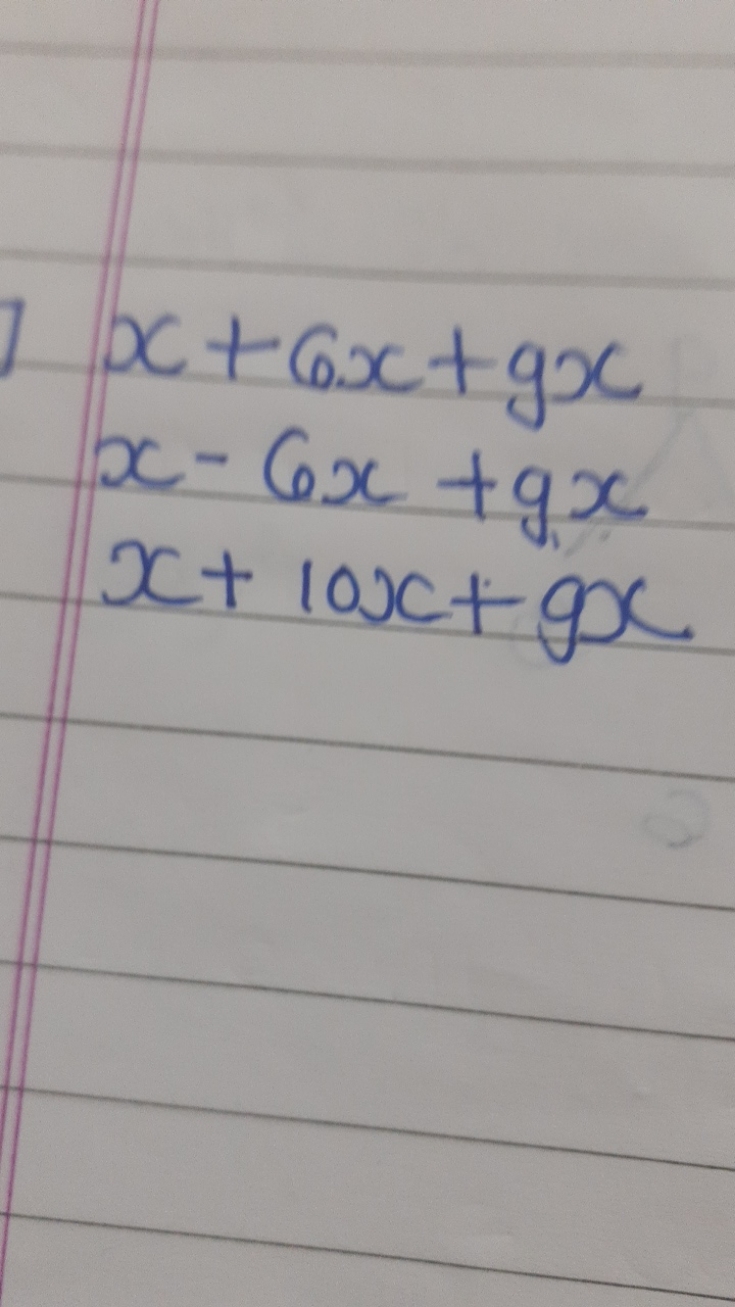 ] x + 6x + 9x
x - 6x + 9x
x + 10x + 9x